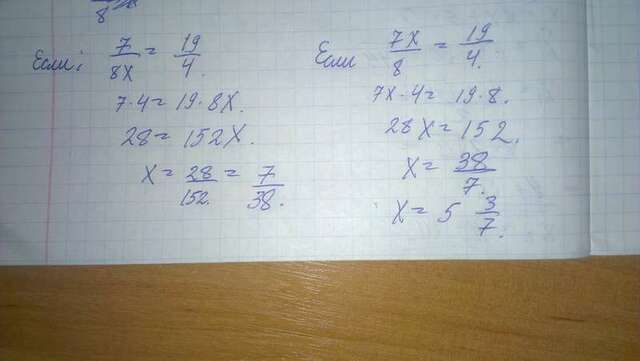 8
Если: 7/8x = 19/4.
7·4 = 19·8x.
28 = 152x.
x = 28/152. = 7/38.
Если 7x/8 = 19/4.
7x·4 = 19·8.
28x = 152.
x = 38/7.
x = 5 3/7.